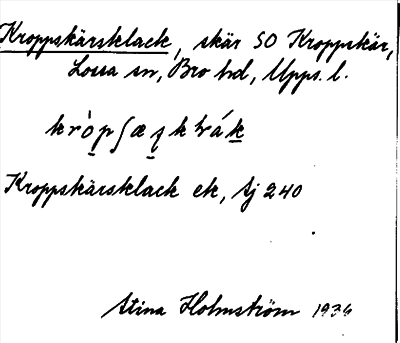 Kroppskärsklack, skär SO Kroppskär,
Lossa sn, Bro hd, Upps. l.
Kroppskärsklack ek, Sj 240
Stina Holmström 1936